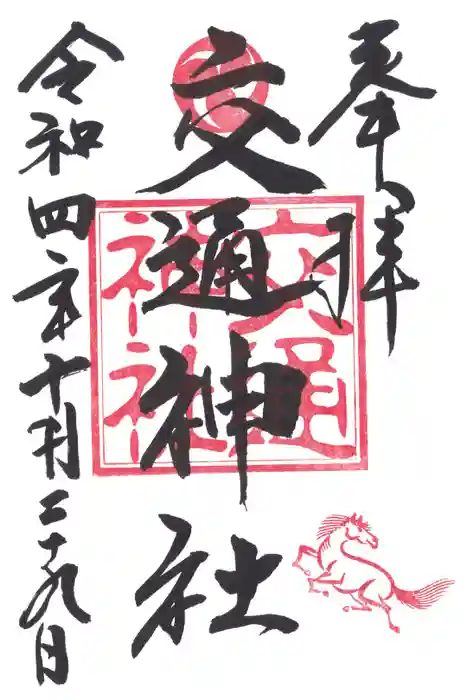 奉拝
交通神社
令和四年十月二十九日
交通
神社